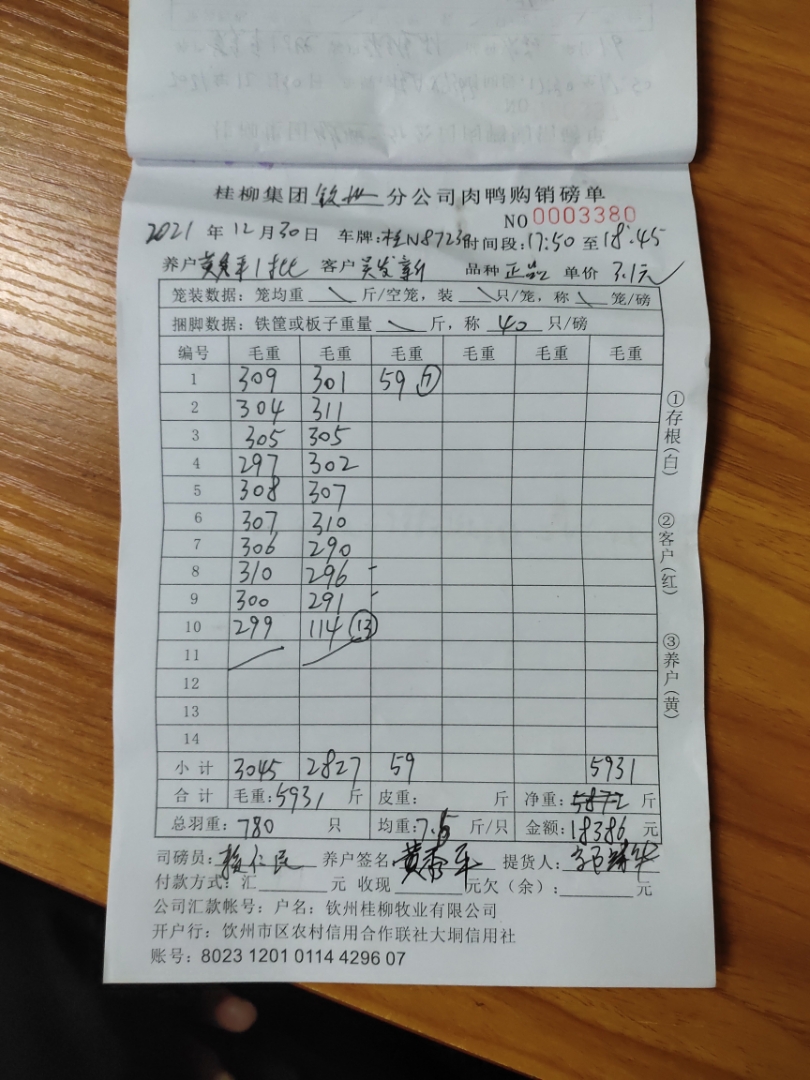 桂柳集团钦州分公司肉鸭购销磅单
NO 0003380
2021年12月30日 车牌:桂N8723 时间段:17:50至18:45
养户黄泰平1批 客户吴发新 品种正品 单价3.1元
笼装数据:笼均重 斤/空笼,装 只/笼,称 笼/磅
捆脚数据:铁筐或板子重量 斤,称 40 只/磅
编号 毛重 毛重 毛重 毛重 毛重 毛重
1 309 301 59 ⑦
2 304 311
3 305 305
4 297 302
5 308 307
6 307 310
7 306 290
8 310 296
9 300 291
10 299 114 ⑬
11
12
13
14
小计 3045 2827 59 5931
合计 毛重:5931斤 皮重: 斤 净重:5872斤
总羽重:780只 均重:7.6斤/只 金额:18386元
司磅员: 仁民 养户签名:黄泰平 提货人:
付款方式:汇 元 收现 元欠(余): 元
公司汇款帐号:户名:钦州桂柳牧业有限公司
开户行:钦州市区农村信用合作联社大垌信用社
账号:8023 1201 0114 4296 07
①存根(白)
②客户(红)
③养户(黄)